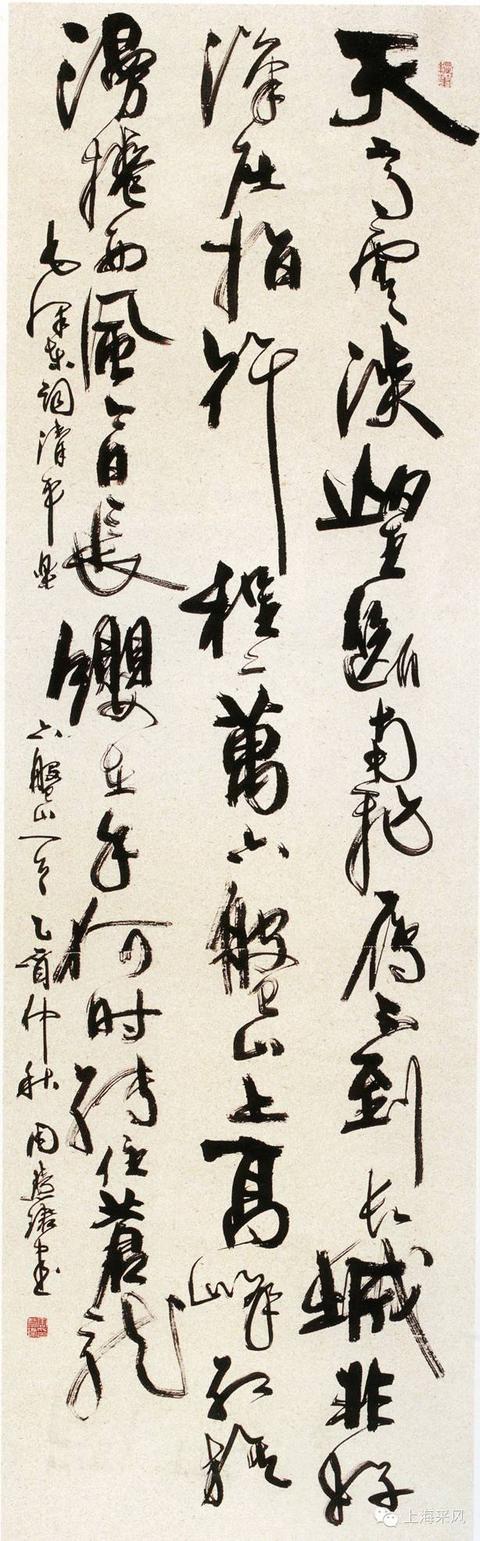 天高雲淡望斷南飛雁不到长城非好
漢屈指行程二萬六盤山上高峰紅旗
漫捲西風今日長纓在手何时縛住蒼龍
毛澤東詞清平樂 六盤山一首 乙酉仲秋 周慧珺書
上海采风